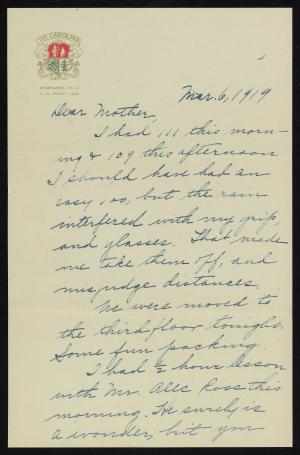 THE CAROLINA
PINEHURST, N.C.
Mar. 6, 1919
Dear Mother,
I had 111 this morn-
ing & 109 this afternoon
I should have had an
easy 100, but the rain
interfered with my grip,
and glasses. That made
me take them off, and
misjudge distances.
We were moved to
the third floor tonight.
Some fun packing.
I had ½ hour lesson
with Mr. Alec Ross this
morning. He surely is
a wonder, but you